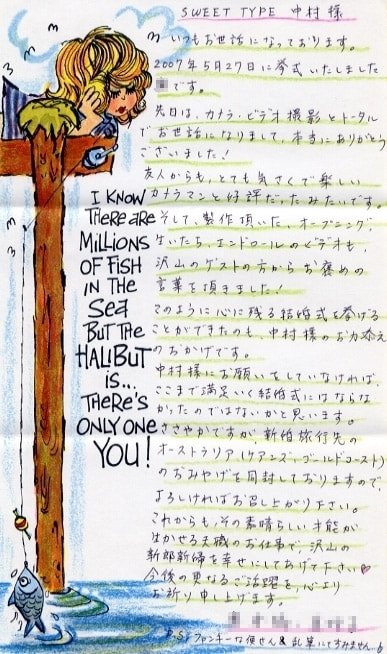 SWEET TYPE 中村様
いつもお世話になっております。
2007年5月27日に挙式いたしました
です。
先日は、カメラ・ビデオ撮影とトータル
でお世話になりまして、本当にありがとう
ございました!
友人からも、とても気さくで楽しい
カメラマンと好評だったみたいです。
そして、製作頂いた、オープニング、
生いたち、エンドロールのビデオも、
沢山のゲストの方からお褒めの
言葉を頂きました!
このように心に残る結婚式を挙げる
ことができたのも、中村様のお力添え
のおかげです。
中村様にお願いをしていなければ、
ここまで満足いく結婚式にはならな
かったのではないかと思います。
ささやかですが、新婚旅行先の
オーストラリア(ケアンズ・ゴールドコースト)
のおみやげを同封しておりますので、
よろしければお召し上がり下さい。
これからも、その素晴らしい才能が
生かせる天職のお仕事で、沢山の
新郎新婦を幸せにしてあげて下さい♥
今後の更なるご活躍を、心より
お祈り申し上げます。
P.S. ファンキーな便せん & 乱筆にてすみません。
I KNOW
THERE ARE
MILLIONS
OF FISH
IN THE
SEA
BUT THE
HALIBUT
IS...
THERE'S
ONLY ONE
YOU!